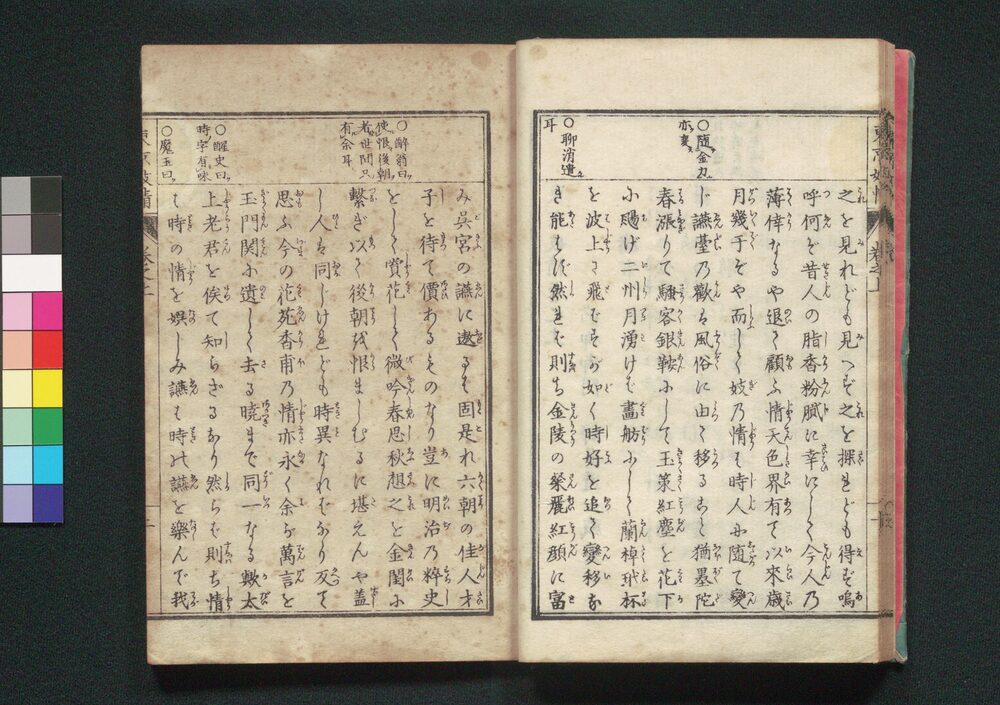 ○随金刀
亦妻
○聊消遣
耳
之を見れども見へず之を探れども得ず嗚
呼何ぞ昔人の脂香粉膩に幸にして今人乃
薄倖なるや退て顧ふ情天色界有て以來歳
月幾干ぞや而して妓乃情も時人に随て變
じ讌䑓乃歡も風俗に由て移ること猶墨陀
春漲りて騒客銀鞍にして玉䇿紅塵を花下
に颺げ二州月湧けば畫舫にして蘭棹玳杯
を波上に飛ばすが如く時好を追て變移な
き能はず然れば則ち金陵の榮麗紅顔に富
○醉翁曰
使恨後朝
者世間只
有余耳
○醒史曰
時字有味
○魔王曰
み呉宮の讌に遨るも固是れ六朝の佳人才
子を待て價あるものなり豈に明治乃粹史
をして賞花して微吟春思秋想之を金閨に
繋ぎ以て後朝を恨ましむるに堪えんや盖
し人は同じけれども時異なればなり反て
思ふ今の花苑香甫乃情亦永く余ら萬言を
玉門関に遺して去る暁まで同一なる歟太
上老君を俟て知らざるなり然らば則ち情
も時の情を娯しみ讌も時の讌を樂んで我
東京妓情
卷之上